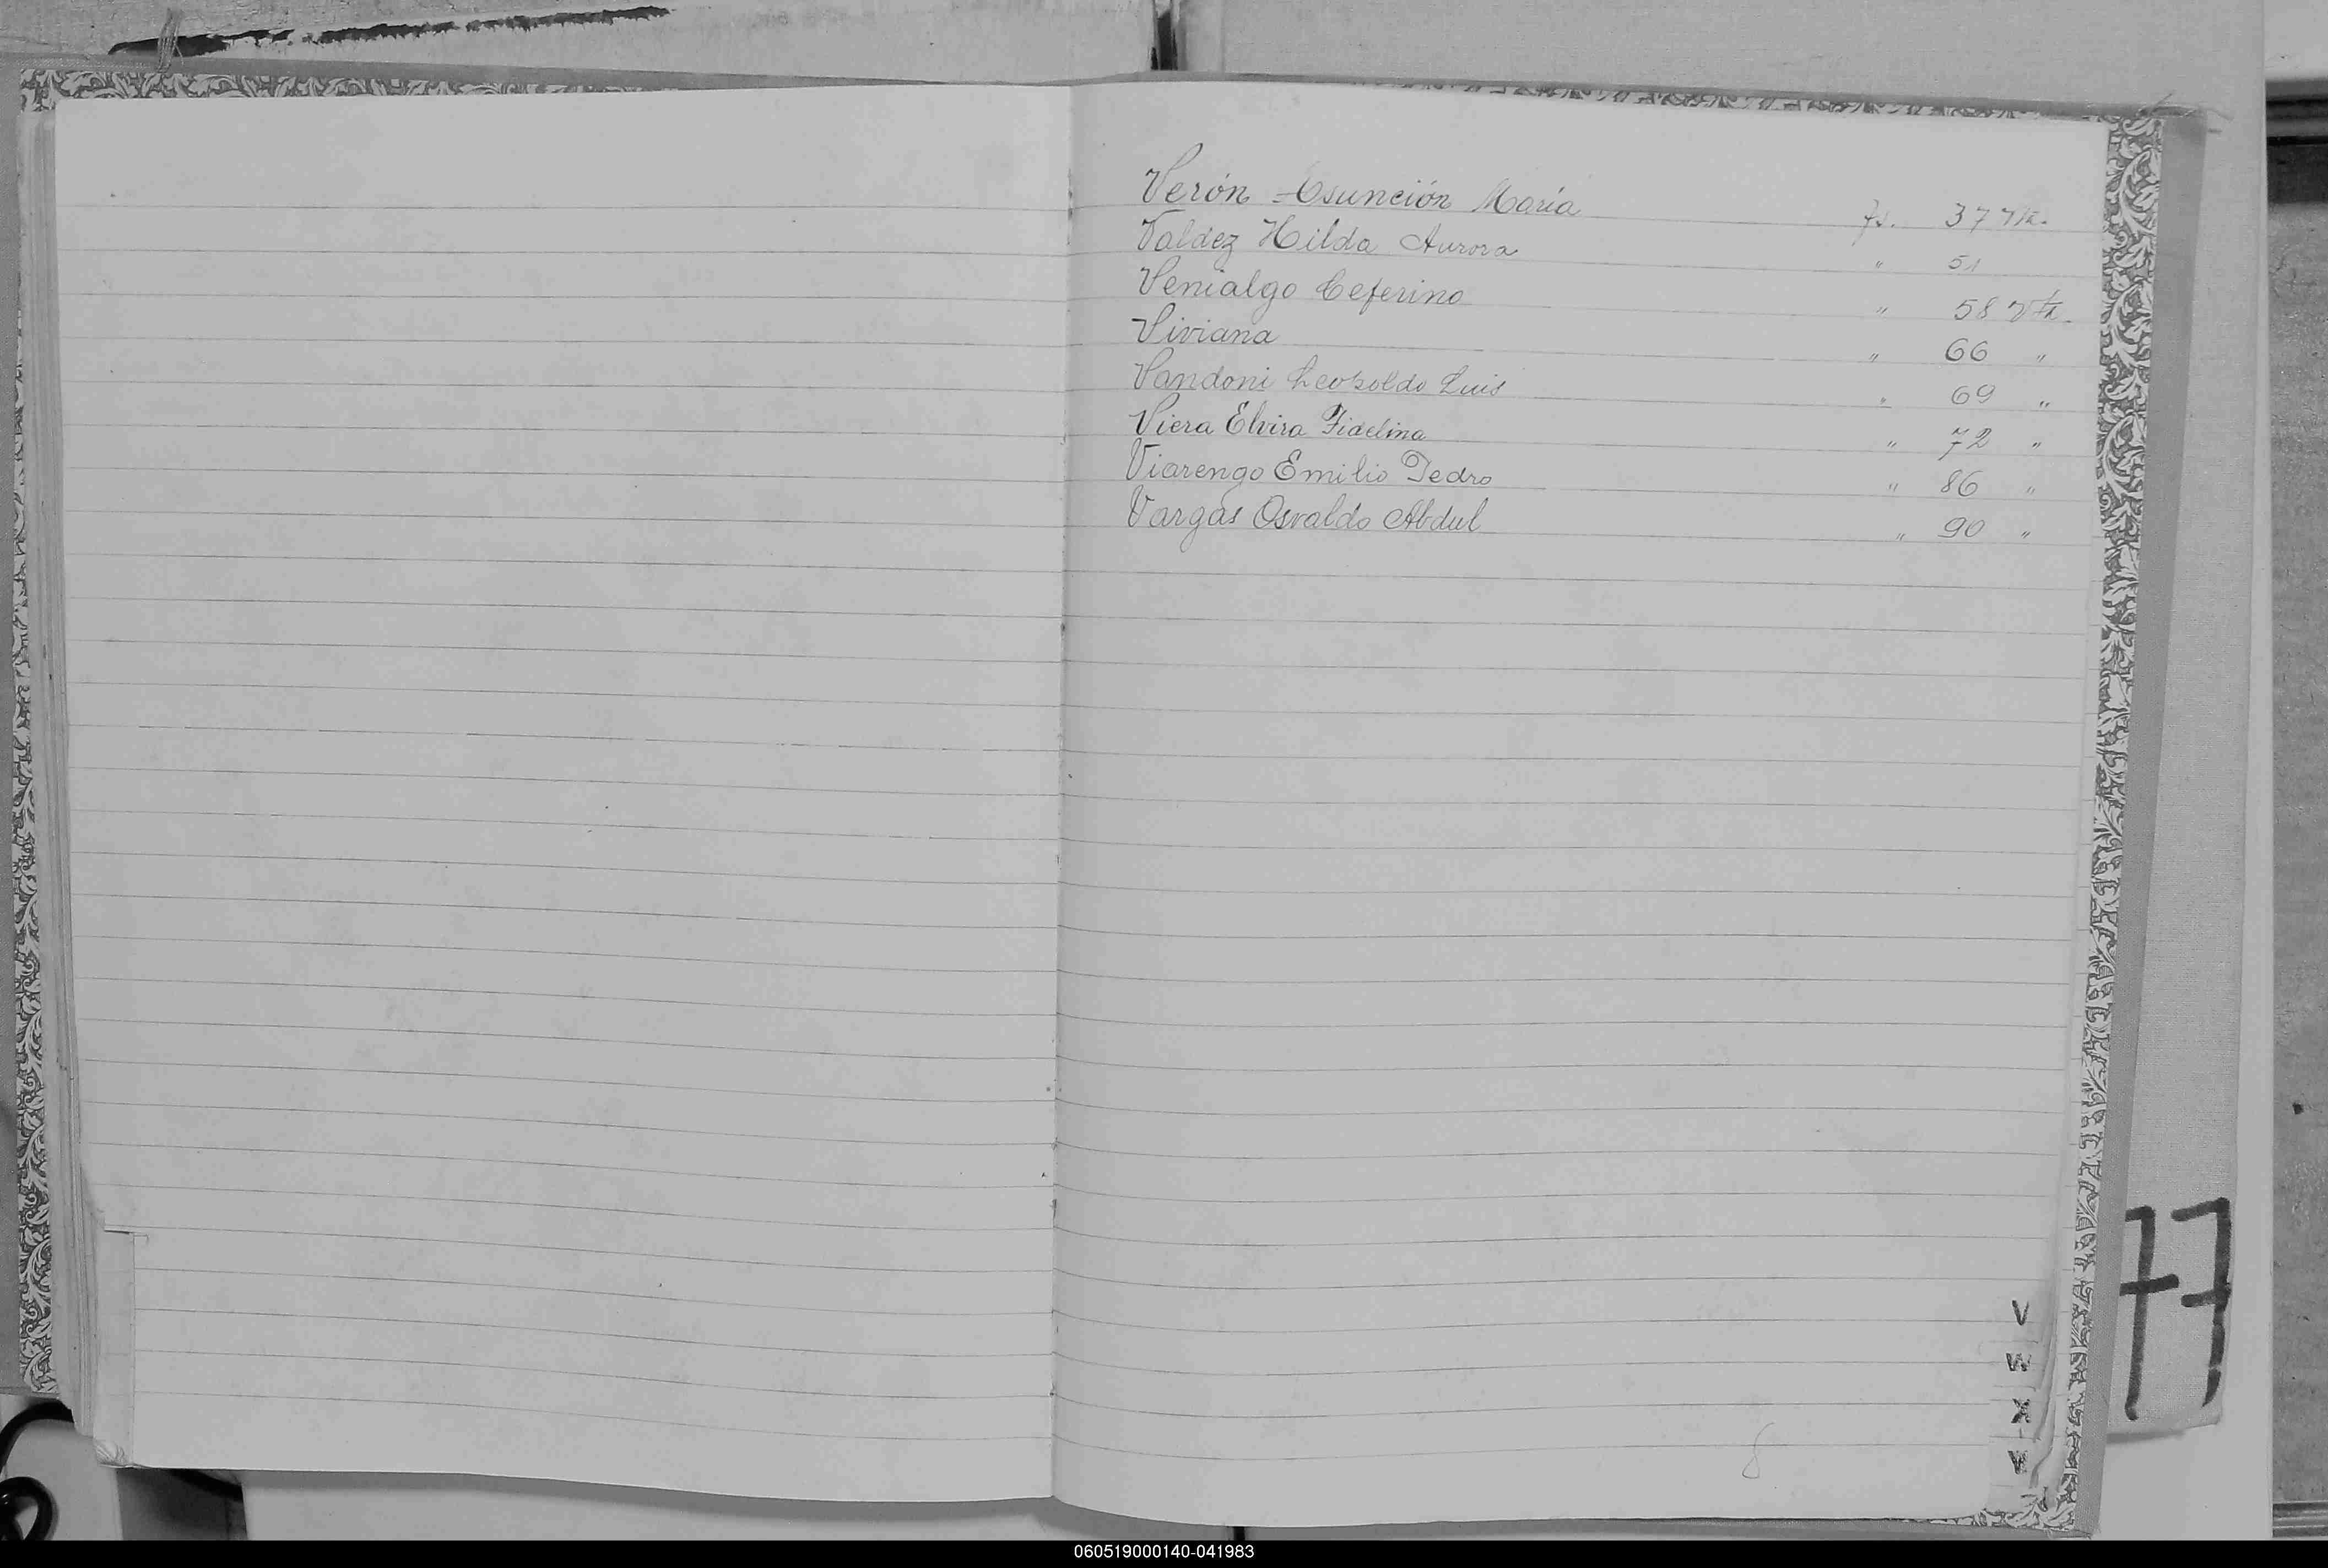 Verón Asunción María fs. 37 vta.
Valdez Hilda Aurora " 51
Venialgo Ceferino " 58 vta.
Viviana " 66 "
Vandoni Leopoldo Luis " 69 "
Viera Elvira Fidelina " 72 "
Viarengo Emilio Pedro " 86 "
Vargas Osvaldo Abdul " 90 "
77
V
W
X
Y
8
060519000140-041983